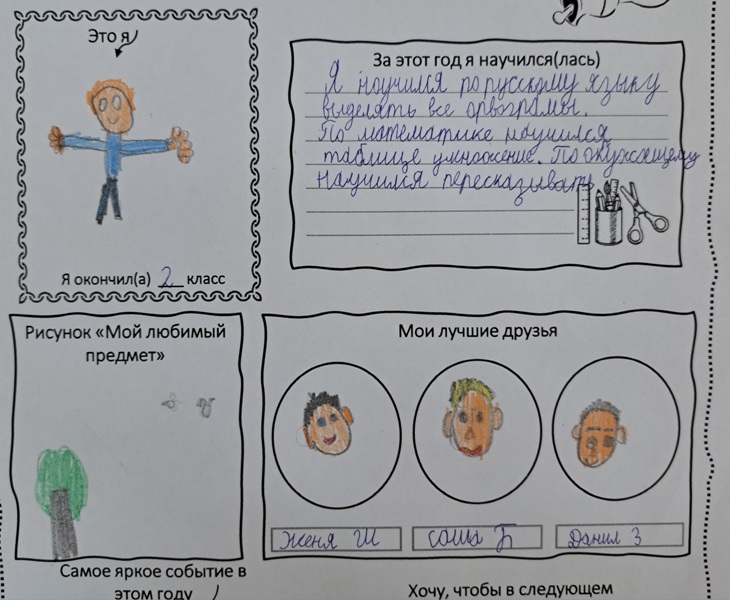 Это я
Я окончил(а) 2 класс
За этот год я научился(лась)
Я научился по русскому языку
выделять все орфограмы.
По математике научился
таблице умножение. По окужающему
научился пересказывать.
Рисунок «Мой любимый
предмет»
Мои лучшие друзья
Женя Ш
Саша Б
Данил З
Самое яркое событие в
этом году
Хочу, чтобы в следующем